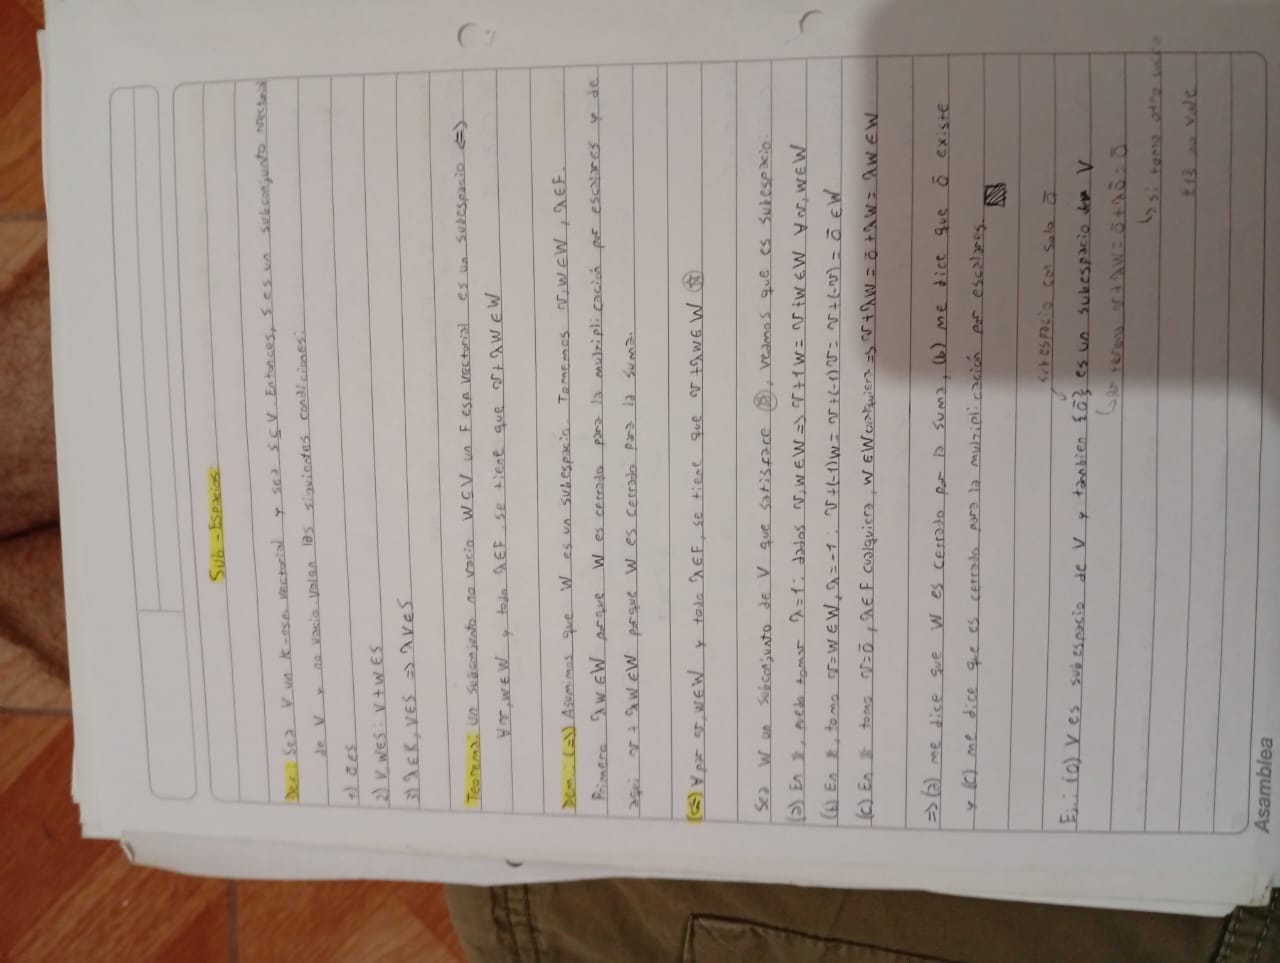 Sub-Espacios
Def: Sea V un K-esp. vectorial y sea S⊆V. Entonces, S es un subconjunto vectorial
de V y no vacio valan las siguientes condiciones:
1) ō∈S
2) V,W∈S: V+W∈S
3) λ∈K, V∈S => λV∈S
Teorema: Un subconjunto no vacio W⊂V un F esp vectorial es un subespacio <=>
∀v,w∈W y todo λ∈F, se tiene que v+λw∈W
Dem: (=>) Asumimos que W es un subespacio. Tomemos v,w∈W, λ∈F.
Primero λw∈W porque W es cerrado para la multiplicación por escalares y de
aqui v+λw∈W porque W es cerrado para la suma.
(<=) ∀ par v,w∈W y todo λ∈F, se tiene que v+λw∈W ⊛
Sea W un subconjunto de V que satisface ⊛, veamos que es subespacio.
(a) En *, puedo tomar λ=1: dados v,w∈W => v+1w = v+w∈W ∀v,w∈W
(b) En *, tomo v=w∈W, λ=-1: v+(-1)w = v+(-1)v = v+(-v) = ō∈W
(c) En * tomo v=ō, λ∈F cualquiera, w∈W cualquiera => v+λw = ō+λw = λw∈W
=> (a) me dice que W es cerrado por la suma, (b) me dice que ō existe
y (c) me dice que es cerrado para la multiplicación por escalares.
subespacio con solo ō
Ej: (0) V es subespacio de V y tambien {ō} es un subespacio V
v+λw = ō+λō = ō
↳ si tomo otro
no vale
Asamblea